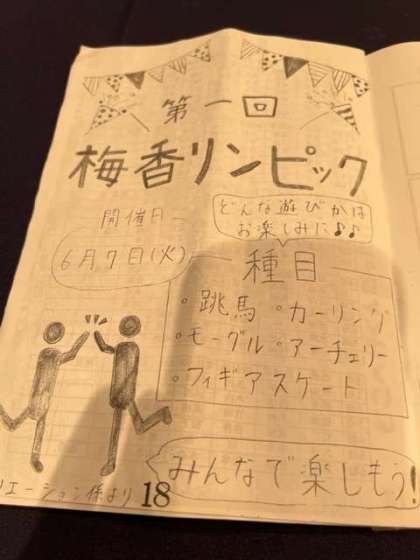 第一回
梅香リンピック
開催日
6月7日(火)
どんな遊びかは
お楽しみに♪♪
種目
・跳馬 ・カーリング
・モーグル ・アーチェリー
・フィギアスケート
みんなで楽しもう!
リエーション係より
18